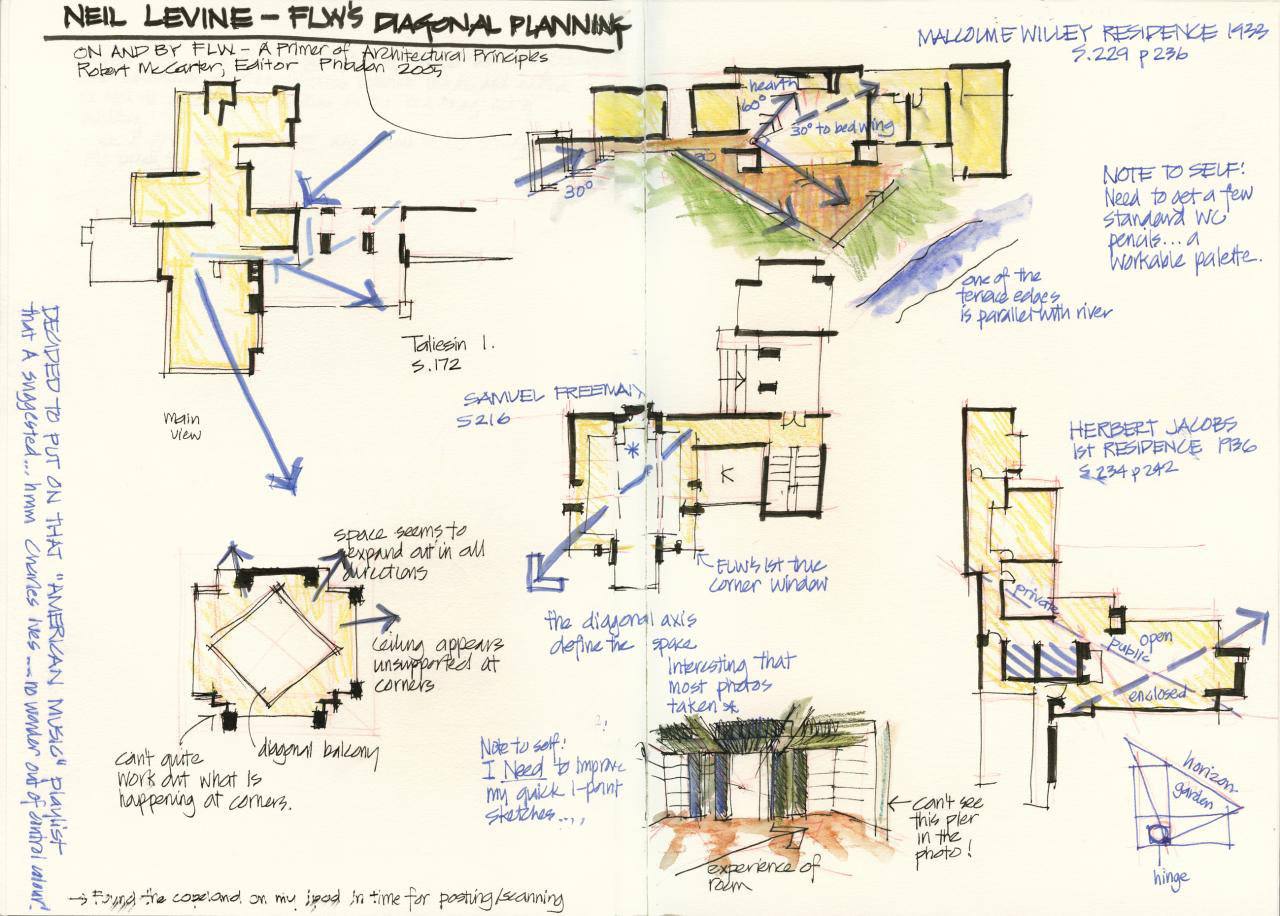 NEIL LEVINE – FLW'S DIAGONAL PLANNING
ON AND BY FLW – A Primer of Architectural Principles
Robert McCarter, Editor Phiadon 2005
MALCOLME WILLEY RESIDENCE 1933
S.229 p 236
hearth
60°
30° to bed wing
30
30°
NOTE TO SELF!
Need to get a few
standard WC
pencils... a
workable palette.
one of the
terrace edges
is parallel with river
Taliesin 1.
S.172
main
view
SAMUEL FREEMAN
S216
*
K
FLW's 1st true
corner window
the diagonal axis
define the space
Interesting that
most photos
taken *
HERBERT JACOBS
1st RESIDENCE 1936
S.234 p 242
private
open
public
enclosed
horizon
garden
hinge
space seems to
expand out in all
directions
Ceiling appears
unsupported at
corners
diagonal balcony
can't quite
work out what is
happening at corners.
Note to self!
I Need to improve
my quick 1-point
sketches....
experience of
room
can't see
this pier
in the
photo!
DECIDED TO PUT ON THAT "AMERICAN MUSIC" PLAYLIST
that A suggested... hmm Charles Ives ... no wonder out of
→ Found the copeland on my ipod in time for posting/scanning